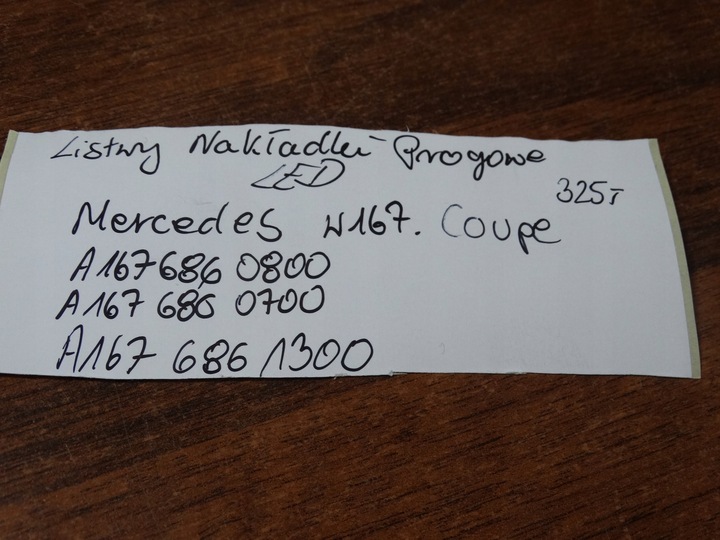 Listwy Nakładki Progowe
LED
325T
Mercedes W167. Coupe
A167 686 0800
A167 686 0700
A167 686 1300